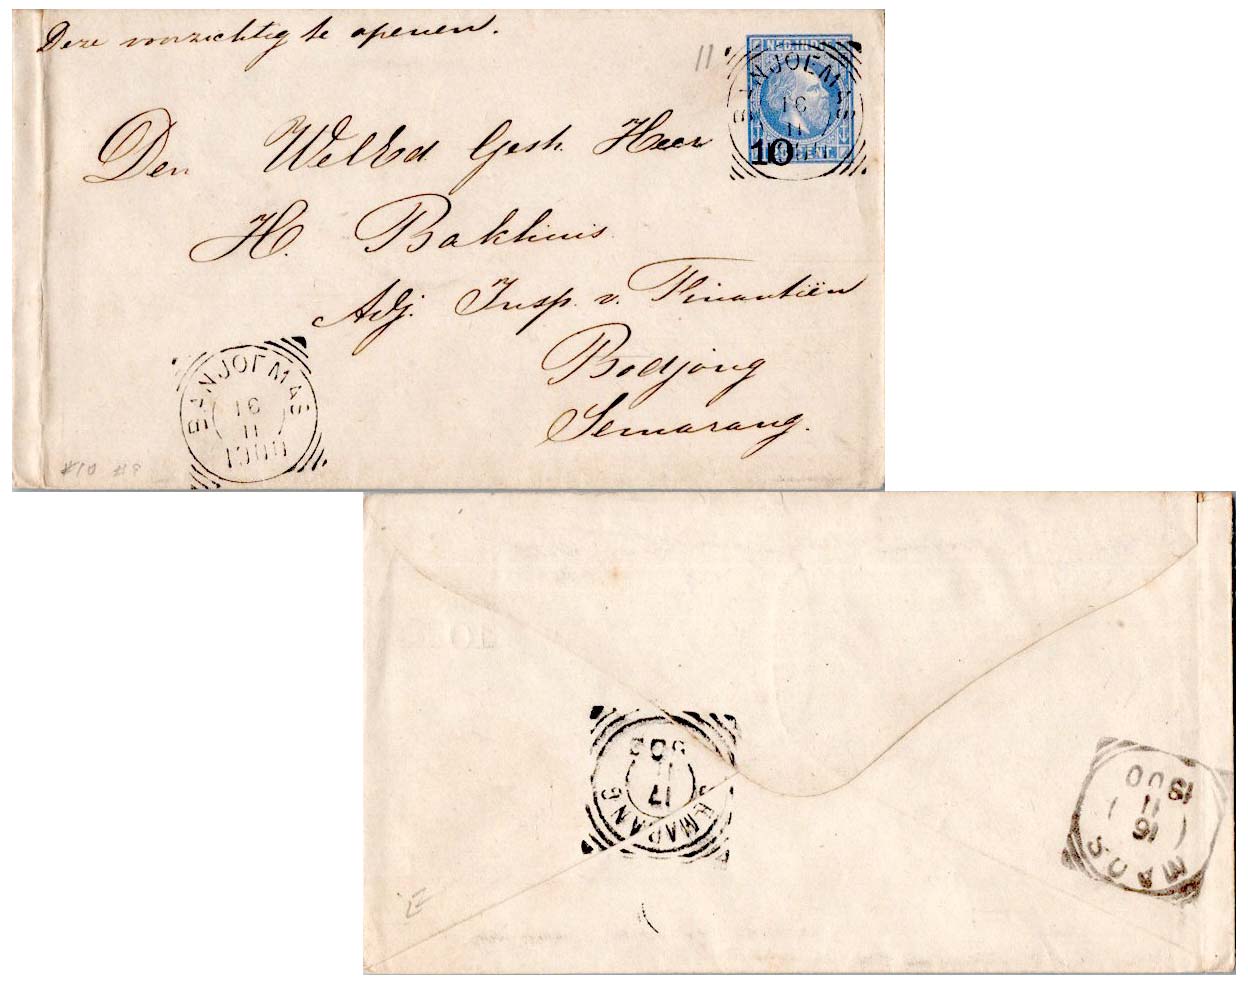 Deze voorzichtig te openen.
11
NED. INDIE
BANJOEMAS
16
11
10
CENT.
Den WelEd Gestr. Heer
H. Bakhuis
Adj. Insp. v. Financiën
Bodjong
Semarang.
BANJOEMAS
16
11
1900
SEMARANG
17
11
MAOS
16
11
1900